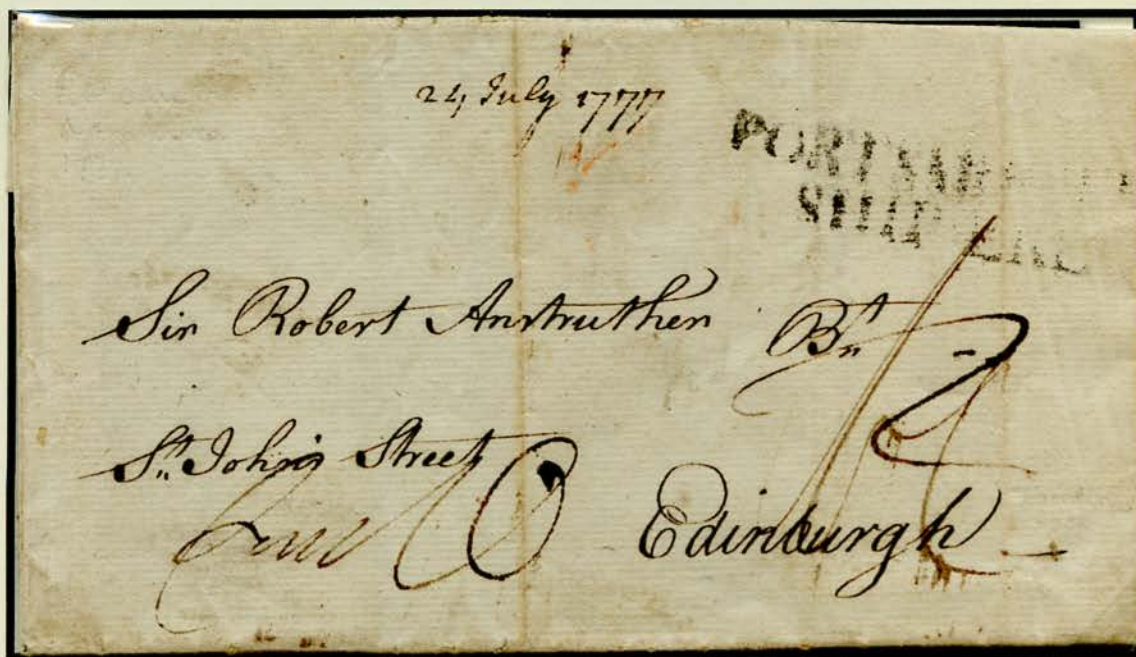 24 July 1777
SHIP
Sir Robert Anstruther Bt
St. John's Street
Edinburgh